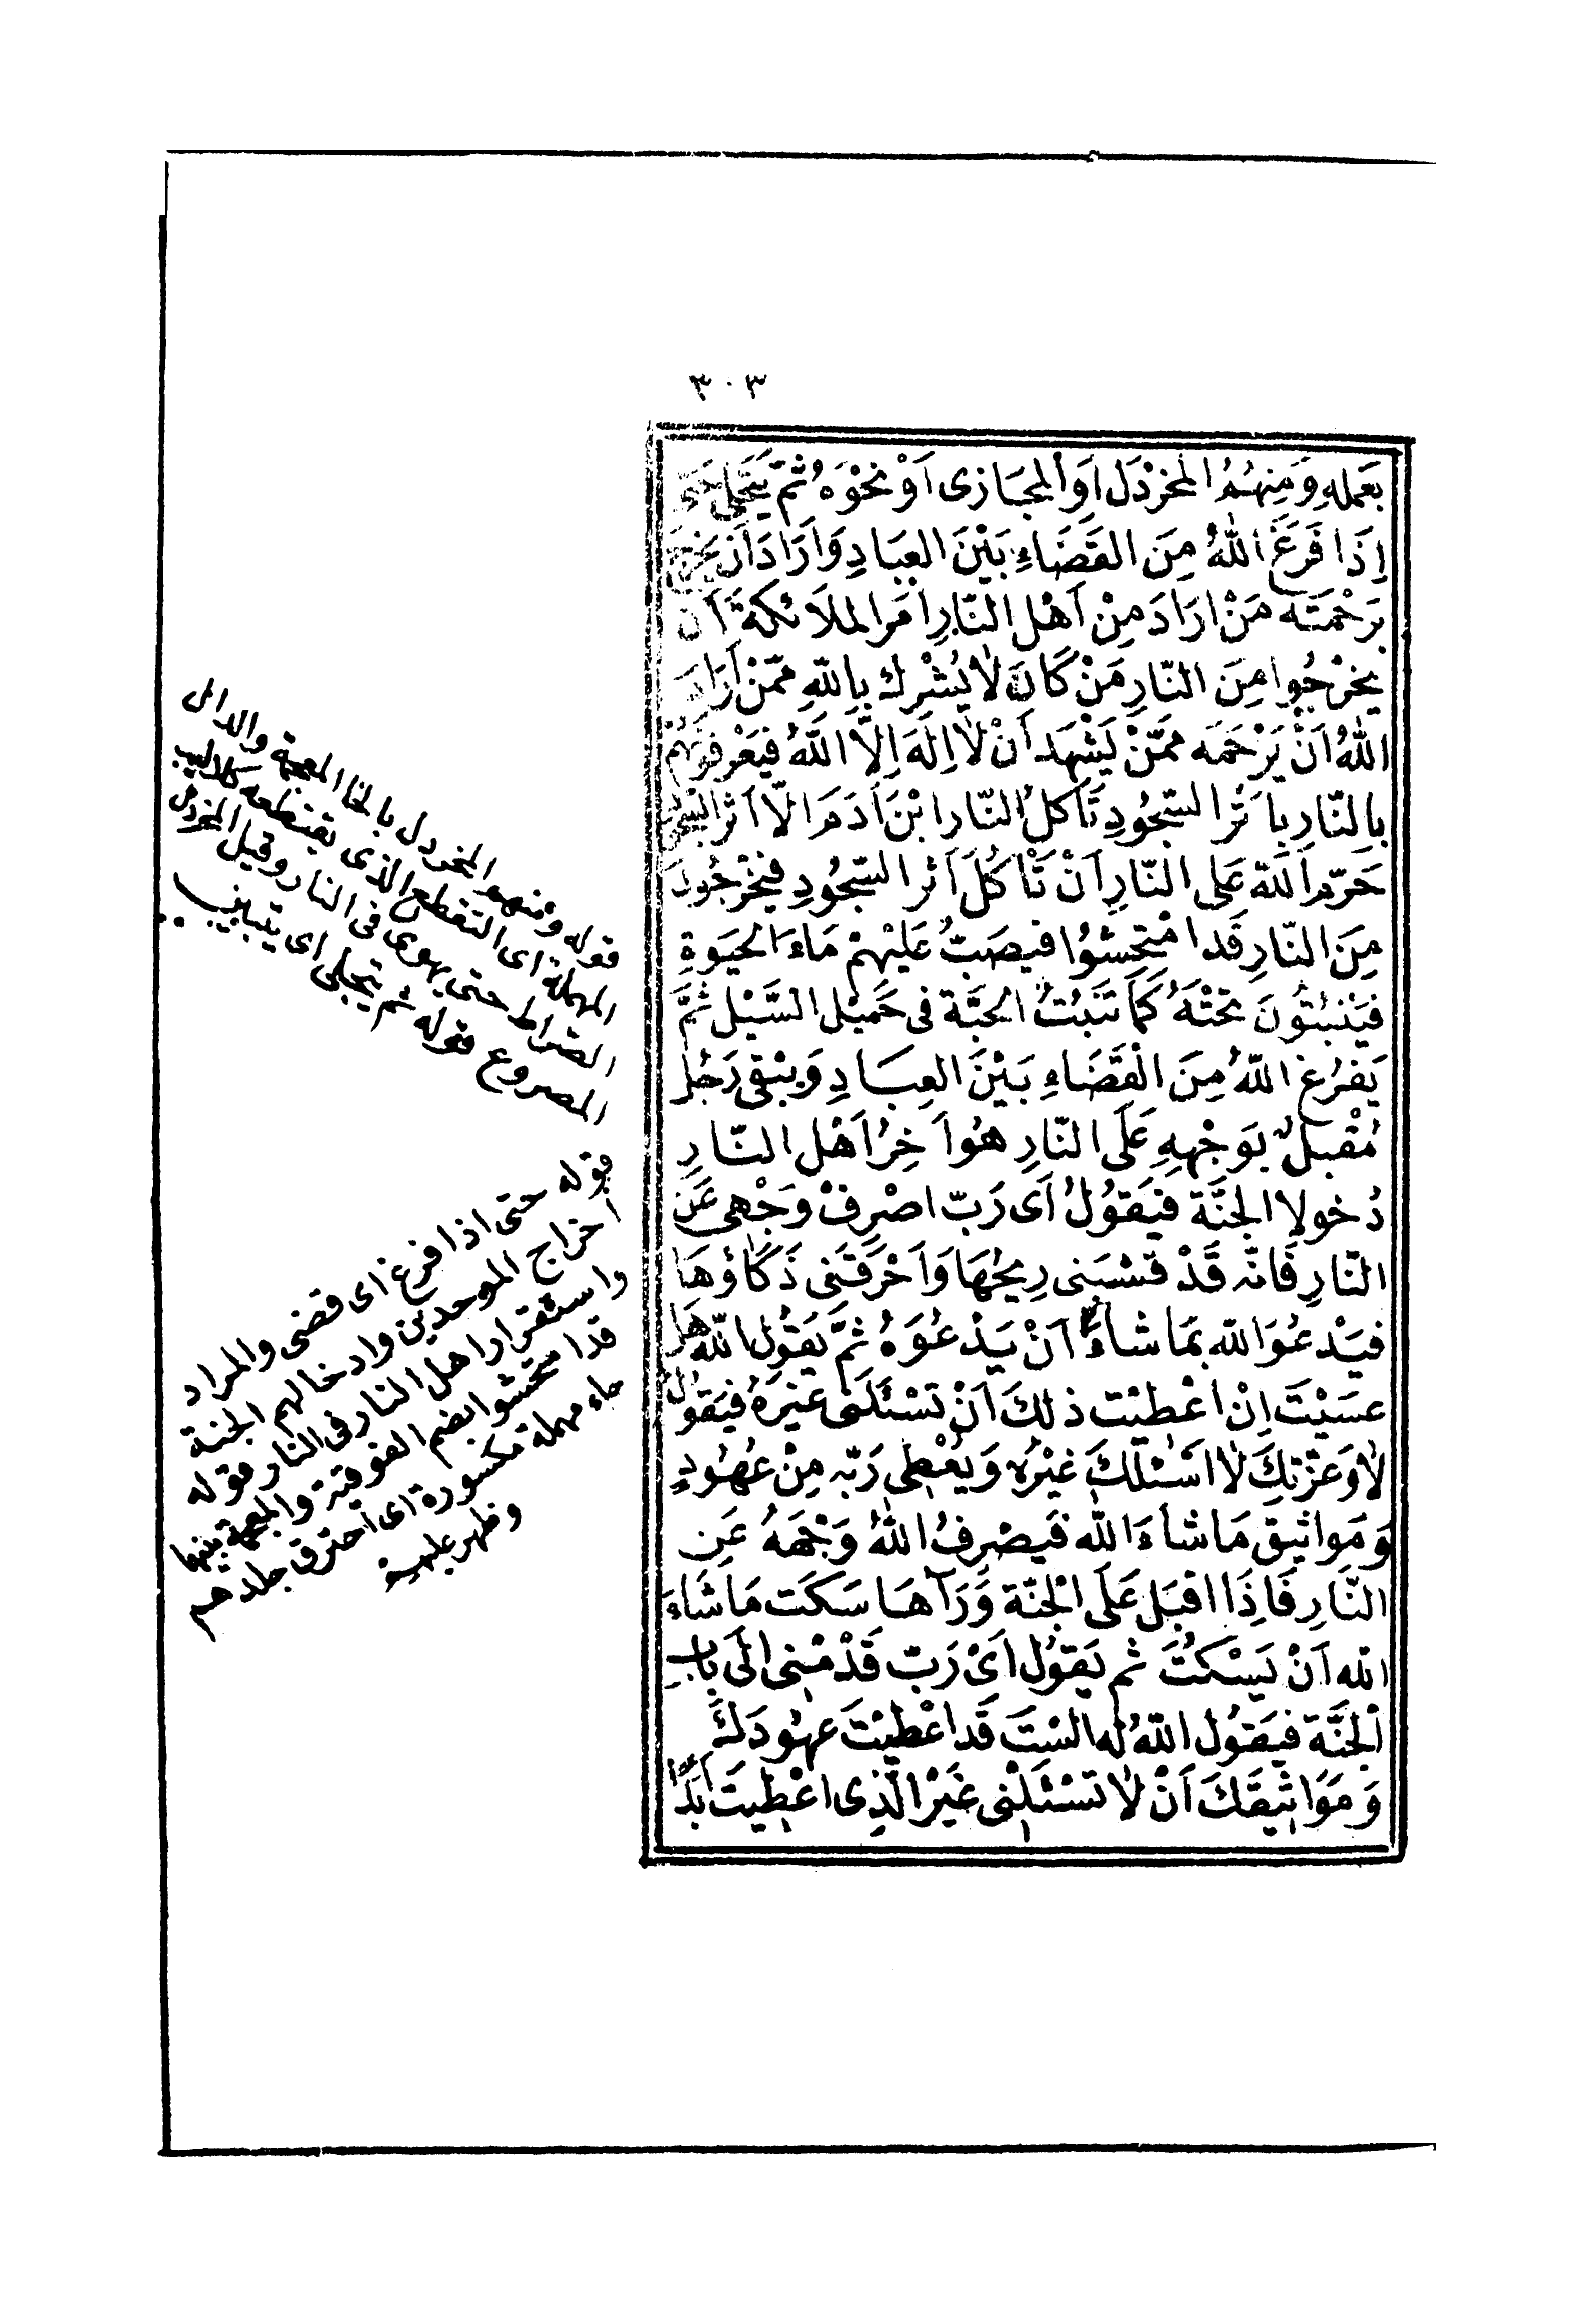 ٣٠٣
بعَمَلِهِ وَمِنهُمُ المخرْدَل اَوِ المجَازى اَوْ نحْوَهُ ثُمّ يَتَجلى حَتى
إِذَا فَرَغَ اللهُ مِنَ القَضَاءِ بَيْنَ العِبَادِ وَاَرَادَ اَن يخرج
بَرَحْمَتَه مَنْ ارَادَ مِنْ اَهْل النّارِ امَر الملاَئكة اَن
يخرْجُوا مِنَ النّارِ مَنْ كَانَ لاٰ يُشْرِك بِاللّهِ ممّنْ اَرَادَ
اللهُ اَنْ يَرْحَمَه ممَّنْ يَشْهَد اَنْ لاٰ اِلَهَ اِلاّ اللّهُ فيَعْرفونَهُمْ
بِالنّارِ بِاَثَر السّجُودِ تَاكلُ النّار ابْنَ اَدَمَ الاّ اَثَر السّجُود
حَرّم اَللّه عَلى النّارِ اَنْ تَاْكُلَ اَثر السّجُودِ فيَخْرجُونَ
مِنَ النّارِ قَد امْتحِشُوا فيصَبّ عَليْهِمْ مَاءَ الحيَوةِ
فيَنْبتُونَ تحْتَهُ كَمَا تَنبَتُ الحِبَّة فى حَميْل السَّيْل ثُمَّ
يَفرُغ اللّهُ مِنَ الْقَضَاءِ بَيْنَ العِبَادِ وَيبْقى رَجُل
مُقْبِلٌ بوَجْهِهِ عَلَى النّارِ هُوَ اَخِرُ اَهْل النّارِ
دُخولا الجنَّة فيَقُولُ اَى رَبّ اصْرِفْ وَجْهى عَن
النّارِ فَانّه قَدْ قشبَنى رِيحُهَا وَاَحْرَقَنى ذَكَاؤهَا
فيَدْعُوَ اللّه بمَا شاءَ اَنْ يَدْعُوَهُ ثمَّ يَقُول اللّه هَل
عسَيْتَ اِنْ اعْطيْت ذلكَ اَنْ تَسْئَلَنى غيْرَهُ فيَقُولُ
لاٰ وَعزّتكَ لاٰ اسْئلكَ غيْرَه وَيعْطى رَبّه مِنْ عُهُودٍ
وَمَوَاثيقَ مَا شاءَ اللّه فيَصْرِفُ اللّهُ وَجْهَهُ عَن
النّارِ فَاِذَا اقبَل عَلَى الْجنّة وَرَآهَا سَكَت مَا شَاءَ
اللّه اَنْ يَسْكُتَ ثم يَقوُل اَىْ رَبّ قَدْمْنِى الَى بَابِ
اْلجنَّة فيقُول اللّهُ له السْتَ قَد اعْطيْتَ عهُودَكَ
وَمَوَاثيقَكَ اَنْ لاٰ تسْئَلنْى غَيْر الّذِى اعْطيتَ اَبَدًا
قوله ومنهو المخردل بالخا المعجمة والدال
المهملة اى التقطع الذى يقتطعه كلاليب
الصراط حتى يهوى فى النار وقيل المخردل
المصروع قوله ثم يتجلى اى يتبين
قوله حتى اذا فرغ اى قضى والمراد
اخراج الموحدين وادخالهم الجنة
واستقرار اهل النار فى النار قوله
قد امتحشوا بضم الفوقية والمعجمة بينهما
حاء مهملة مكسورة اى احترق جلدهم
وظهر عليه